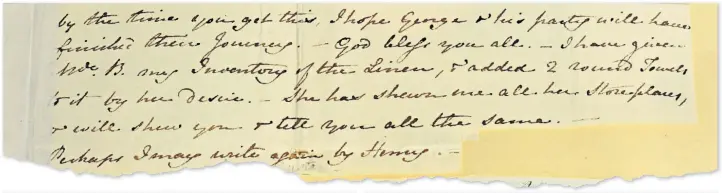 by the time you get this, I hope George & his party will have
finish'd their Journey. — God bless you all. — I have given
Mde. B. my Inventory of the Linen, & added 2 round Towels
to it by her desire. — She has shewn me all her Storeplaces,
& will shew you & tell you all the same. —
Perhaps I may write again by Henry. —